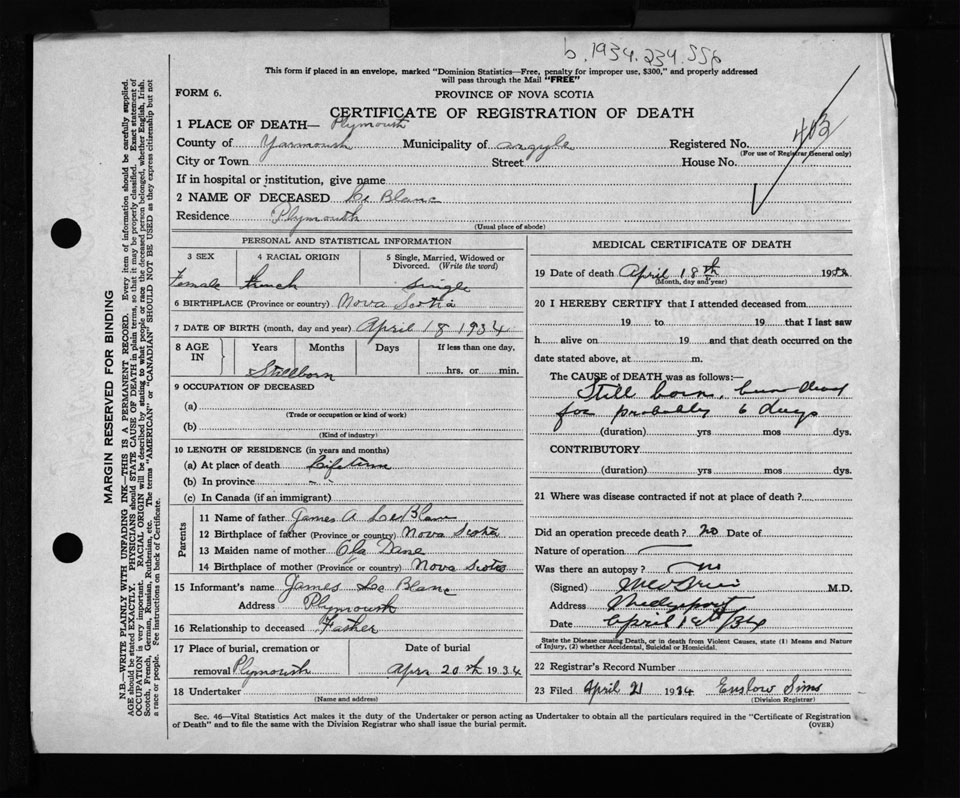 b. 1934. 234. 556
This form if placed in an envelope, marked "Dominion Statistics—Free, penalty for improper use, $300," and properly addressed
will pass through the Mail "FREE"
FORM 6.
PROVINCE OF NOVA SCOTIA
CERTIFICATE OF REGISTRATION OF DEATH
1 PLACE OF DEATH— Plymouth
County of Yarmouth Municipality of Argyle Registered No. 403
(For use of Registrar General only)
City or Town Street House No.
If in hospital or institution, give name
2 NAME OF DECEASED Le Blanc
Residence Plymouth
(Usual place of abode)
PERSONAL AND STATISTICAL INFORMATION
3 SEX 4 RACIAL ORIGIN 5 Single, Married, Widowed or Divorced. (Write the word)
Female French Single
6 BIRTHPLACE (Province or country) Nova Scotia
7 DATE OF BIRTH (month, day and year) April 18 1934
8 AGE IN Years Months Days If less than one day.
Stillborn hrs. or min.
9 OCCUPATION OF DECEASED
(a)
(Trade or occupation or kind of work)
(b)
(Kind of industry)
10 LENGTH OF RESIDENCE (in years and months)
(a) At place of death Lifetime
(b) In province
(c) In Canada (if an immigrant)
Parents
11 Name of father James A LeBlanc
12 Birthplace of father (Province or country) Nova Scotia
13 Maiden name of mother
14 Birthplace of mother (Province or country) Nova Scotia
15 Informant's name James Le Blanc
Address Plymouth
16 Relationship to deceased Father
17 Place of burial, cremation or Date of burial
removal Plymouth Apr 20th 1934
18 Undertaker
(Name and address)
MEDICAL CERTIFICATE OF DEATH
19 Date of death April 18th 1934
(Month, day and year)
20 I HEREBY CERTIFY that I attended deceased from
19 to 19 that I last saw
h alive on 19 and that death occurred on the
date stated above, at m.
The CAUSE of DEATH was as follows:—
Still born, been dead
for probably 6 days
(duration) yrs mos dys.
CONTRIBUTORY
(duration) yrs mos dys.
21 Where was disease contracted if not at place of death?
Did an operation precede death? no Date of
Nature of operation
Was there an autopsy? no
(Signed) M.D.
Address
Date April 18th/34
State the Disease causing Death, or in death from Violent Causes, state (1) Means and Nature
of Injury, (2) whether Accidental, Suicidal or Homicidal.
22 Registrar's Record Number
23 Filed April 21 1934 Enslow Sims
(Division Registrar)
Sec. 46—Vital Statistics Act makes it the duty of the Undertaker or person acting as Undertaker to obtain all the particulars required in the "Certificate of Registration
of Death" and to file the same with the Division Registrar who shall issue the burial permit. (OVER)
MARGIN RESERVED FOR BINDING
N.B.—WRITE PLAINLY WITH UNFADING INK—THIS IS A PERMANENT RECORD. Every item of information should be carefully supplied.
AGE should be stated EXACTLY. PHYSICIANS should STATE CAUSE OF DEATH in plain terms, so that it may be properly classified. Exact statement of
OCCUPATION is very important. RACIAL ORIGIN will be described by stating to what people or race the deceased person belonged, whether English, Irish,
Scotch, French, German, Russian, Ruthenian, etc. The terms "AMERICAN" or "CANADIAN" SHOULD NOT BE USED as they express citizenship but not
a race or people. See instructions on back of Certificate.